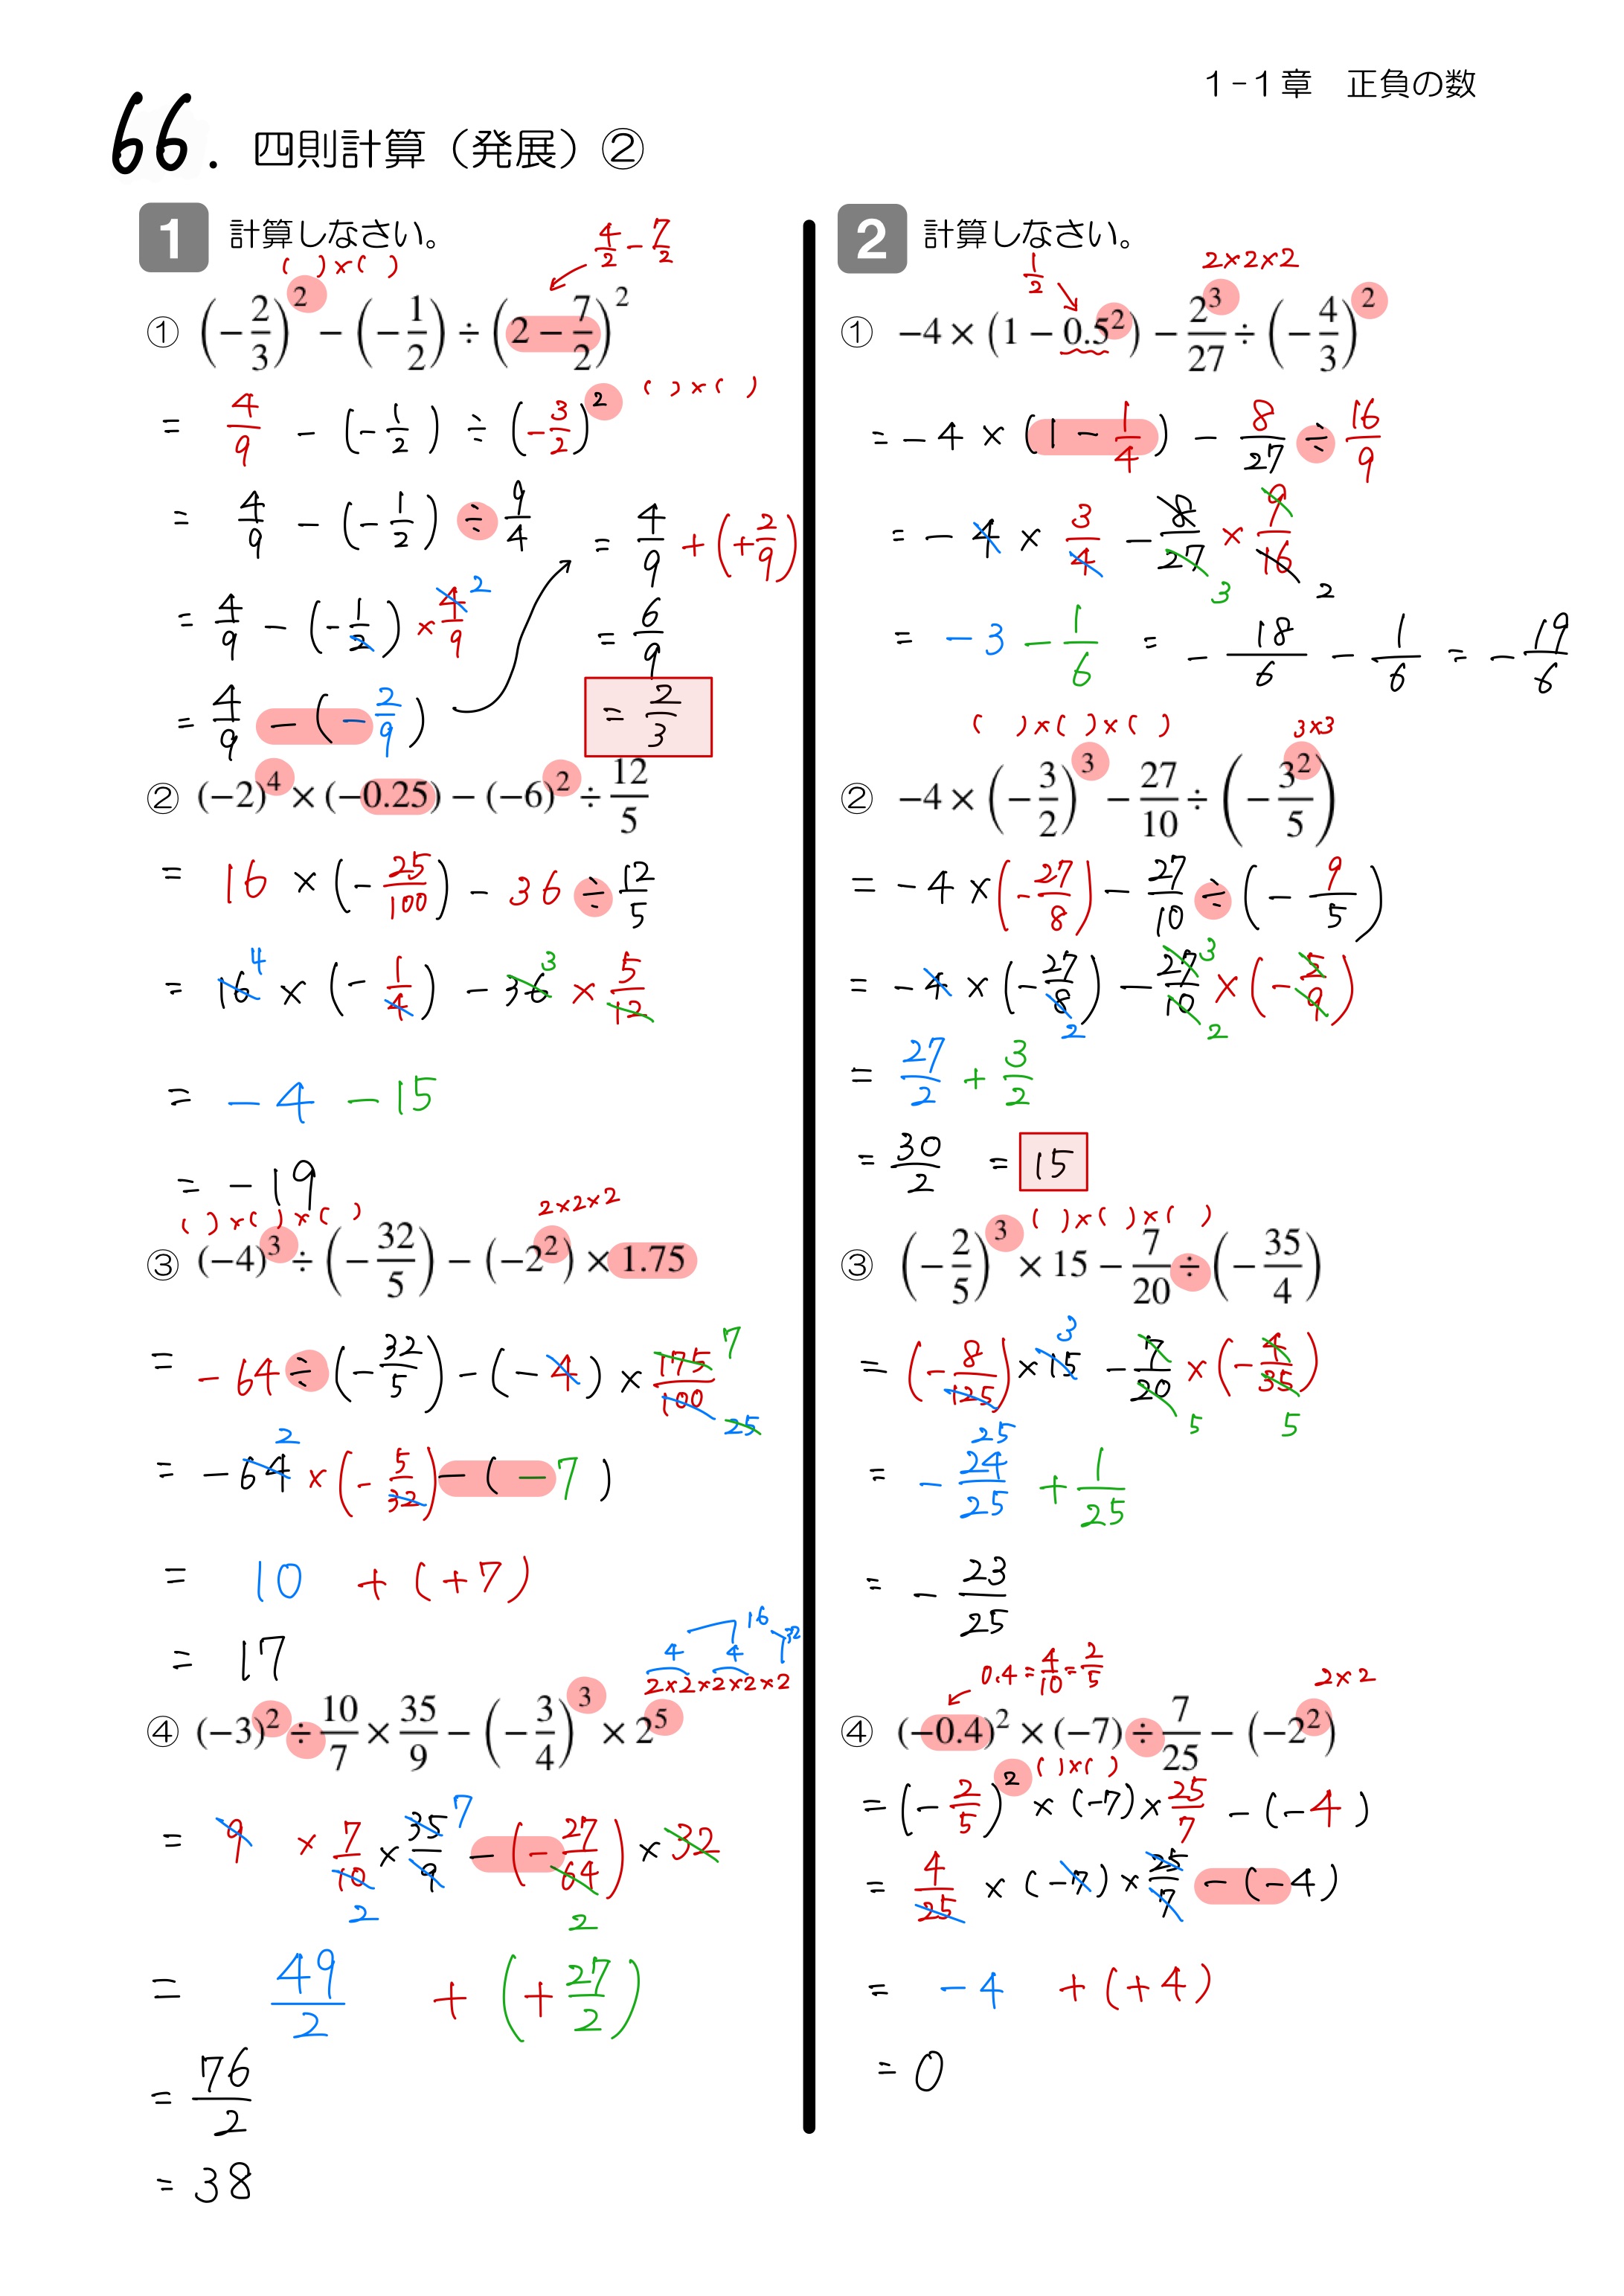 1-1章　正負の数
66. 四則計算（発展）②
1 計算しなさい。
( )×( )
4/2 − 7/2
① (−2/3)² − (−1/2) ÷ (2 − 7/2)²
= 4/9 − (−1/2) ÷ (−3/2)² ( )×( )
= 4/9 − (−1/2) ÷ 9/4
= 4/9 − (−1/2) × 4/9 2
= 4/9 − (−2/9)
= 4/9 + (+2/9)
= 6/9
= 2/3
② (−2)⁴ × (−0.25) − (−6)² ÷ 12/5
= 16 × (−25/100) − 36 ÷ 12/5
= 16 4 × (−1/4) − 36 3 × 5/12
= −4 − 15
= −19
( )×( )×( )
2×2×2
③ (−4)³ ÷ (−32/5) − (−2²) × 1.75
= −64 ÷ (−32/5) − (−4) × 175/100 7 25
= −64 2 × (−5/32) − (−7)
= 10 + (+7)
= 17
16
4 4 32
2×2×2×2×2
④ (−3)² ÷ 10/7 × 35/9 − (−3/4)³ × 2⁵
= 9 × 7/10 × 35/9 7 − (−27/64) × 32
2 2
= 49/2 + (+27/2)
= 76/2
= 38
2 計算しなさい。
1/2
2×2×2
① −4 × (1 − 0.5²) − 2³/27 ÷ (−4/3)²
= −4 × (1 − 1/4) − 8/27 ÷ 16/9
= −4 × 3/4 − 8/27 × 9/16
3 2
= −3 − 1/6 = −18/6 − 1/6 = −19/6
( )×( )×( )
3×3
② −4 × (−3/2)³ − 27/10 ÷ (−3²/5)
= −4 × (−27/8) − 27/10 ÷ (−9/5)
= −4 × (−27/8) − 27/10 3 × (−5/9)
2 2
= 27/2 + 3/2
= 30/2 = 15
( )×( )×( )
③ (−2/5)³ × 15 − 7/20 ÷ (−35/4)
3
= (−8/125) × 15 − 7/20 × (−4/35)
25 5 5
= −24/25 + 1/25
= −23/25
0.4 = 4/10 = 2/5
2×2
④ (−0.4)² × (−7) ÷ 7/25 − (−2²)
( )×( )
= (−2/5)² × (−7) × 25/7 − (−4)
= 4/25 × (−7) × 25/7 − (−4)
= −4 + (+4)
= 0